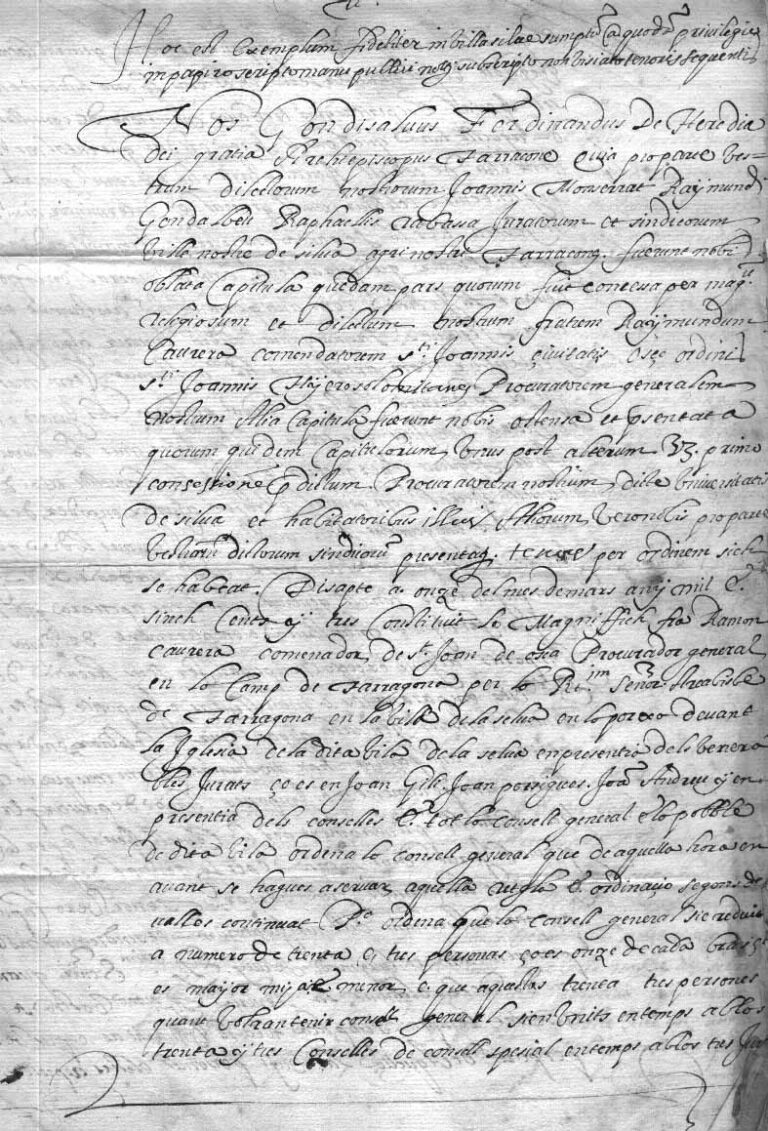 Hoc est Exemplum fideliter in villa silae sumptũ a quodã privilegio
in papiro scripto manu publici not.ij subscripto non visiato tenoris sequentis
Nos Gondisalvus Ferdinandus De Heredia
dei gratia Archiepiscopus Tarracone quia pro parte ves-
trum dilectorum nostrorum Joannis Monserrat Raymundi
Gendalbeu Raphaelis rabassa Juratorum et sindicorum
ville nostre de silva agri nostri Tarracone. fuerunt nobis
oblata Capitula quedam pars quorum fuit concessa per mag.
religiosum et dilectum nostrum fratrem Raymundum
Caurera comendatorem s.ti Joannis civitatis osçe ordinis
s.ti Joannis Hyerosolomitanes Procuratorem generalem
nostrum Alia Capitula fuerunt nobis ostensa et psentata
quorum quidem Capitulorum unus post alterum Vz. primo
concessione p dictum Procuratorem nostrum dicte universitatis
de silva et habitatoribus illius pro parte
vestrum dictorum sindicorũ presentaq. tenores per ordinem sich
se habeat. Disapte a onze del mes de mars any mil E.
sinch Cents y tres Constituit lo Magniffich fra Ramon
Caurera comenador de s.t Joan de osca Procurador general
en lo Camp de Tarragona per lo R.im señor Archabisbe
de Tarragona en la vila de la selva en lo porxo devant
la Iglesia de la dita vila de la selva en presentia dels venera
bles Jurats ço es en Joan Gili. Joan porrigues. Joã Andreu y en
presentia dels consellers E. tot lo Consell general e lo pobble
de dita vila ordena lo Consell general que de aquella hora en
avant se hagues a servar aquella regla E. ordinacio segons de
valles continuat P.o ordena que lo Consell general sie reduit
a numero de trenta e tres personas ço es onze de cada bras ço
es major mija E menor e que aquellas trenta tres persones
quant volran tenir consell general sien units entemps ab los
trenta y tres Consellers de consell spesial entemps ab los tres Jur